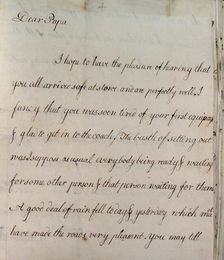 Dear Papa
I hope to have the pleasure of hearing that
you all arrived safe at stowe and are perfectly well. I
fancy that you was soon tired of your first equipage
& glad to get in to the coach, The bustle of setting out
was I suppose as usual everybody being ready & waiting
for some other person & that person waiting for them
A good deal of rain fell today & yesterday which will
have made the roads very pleasant. You may tell